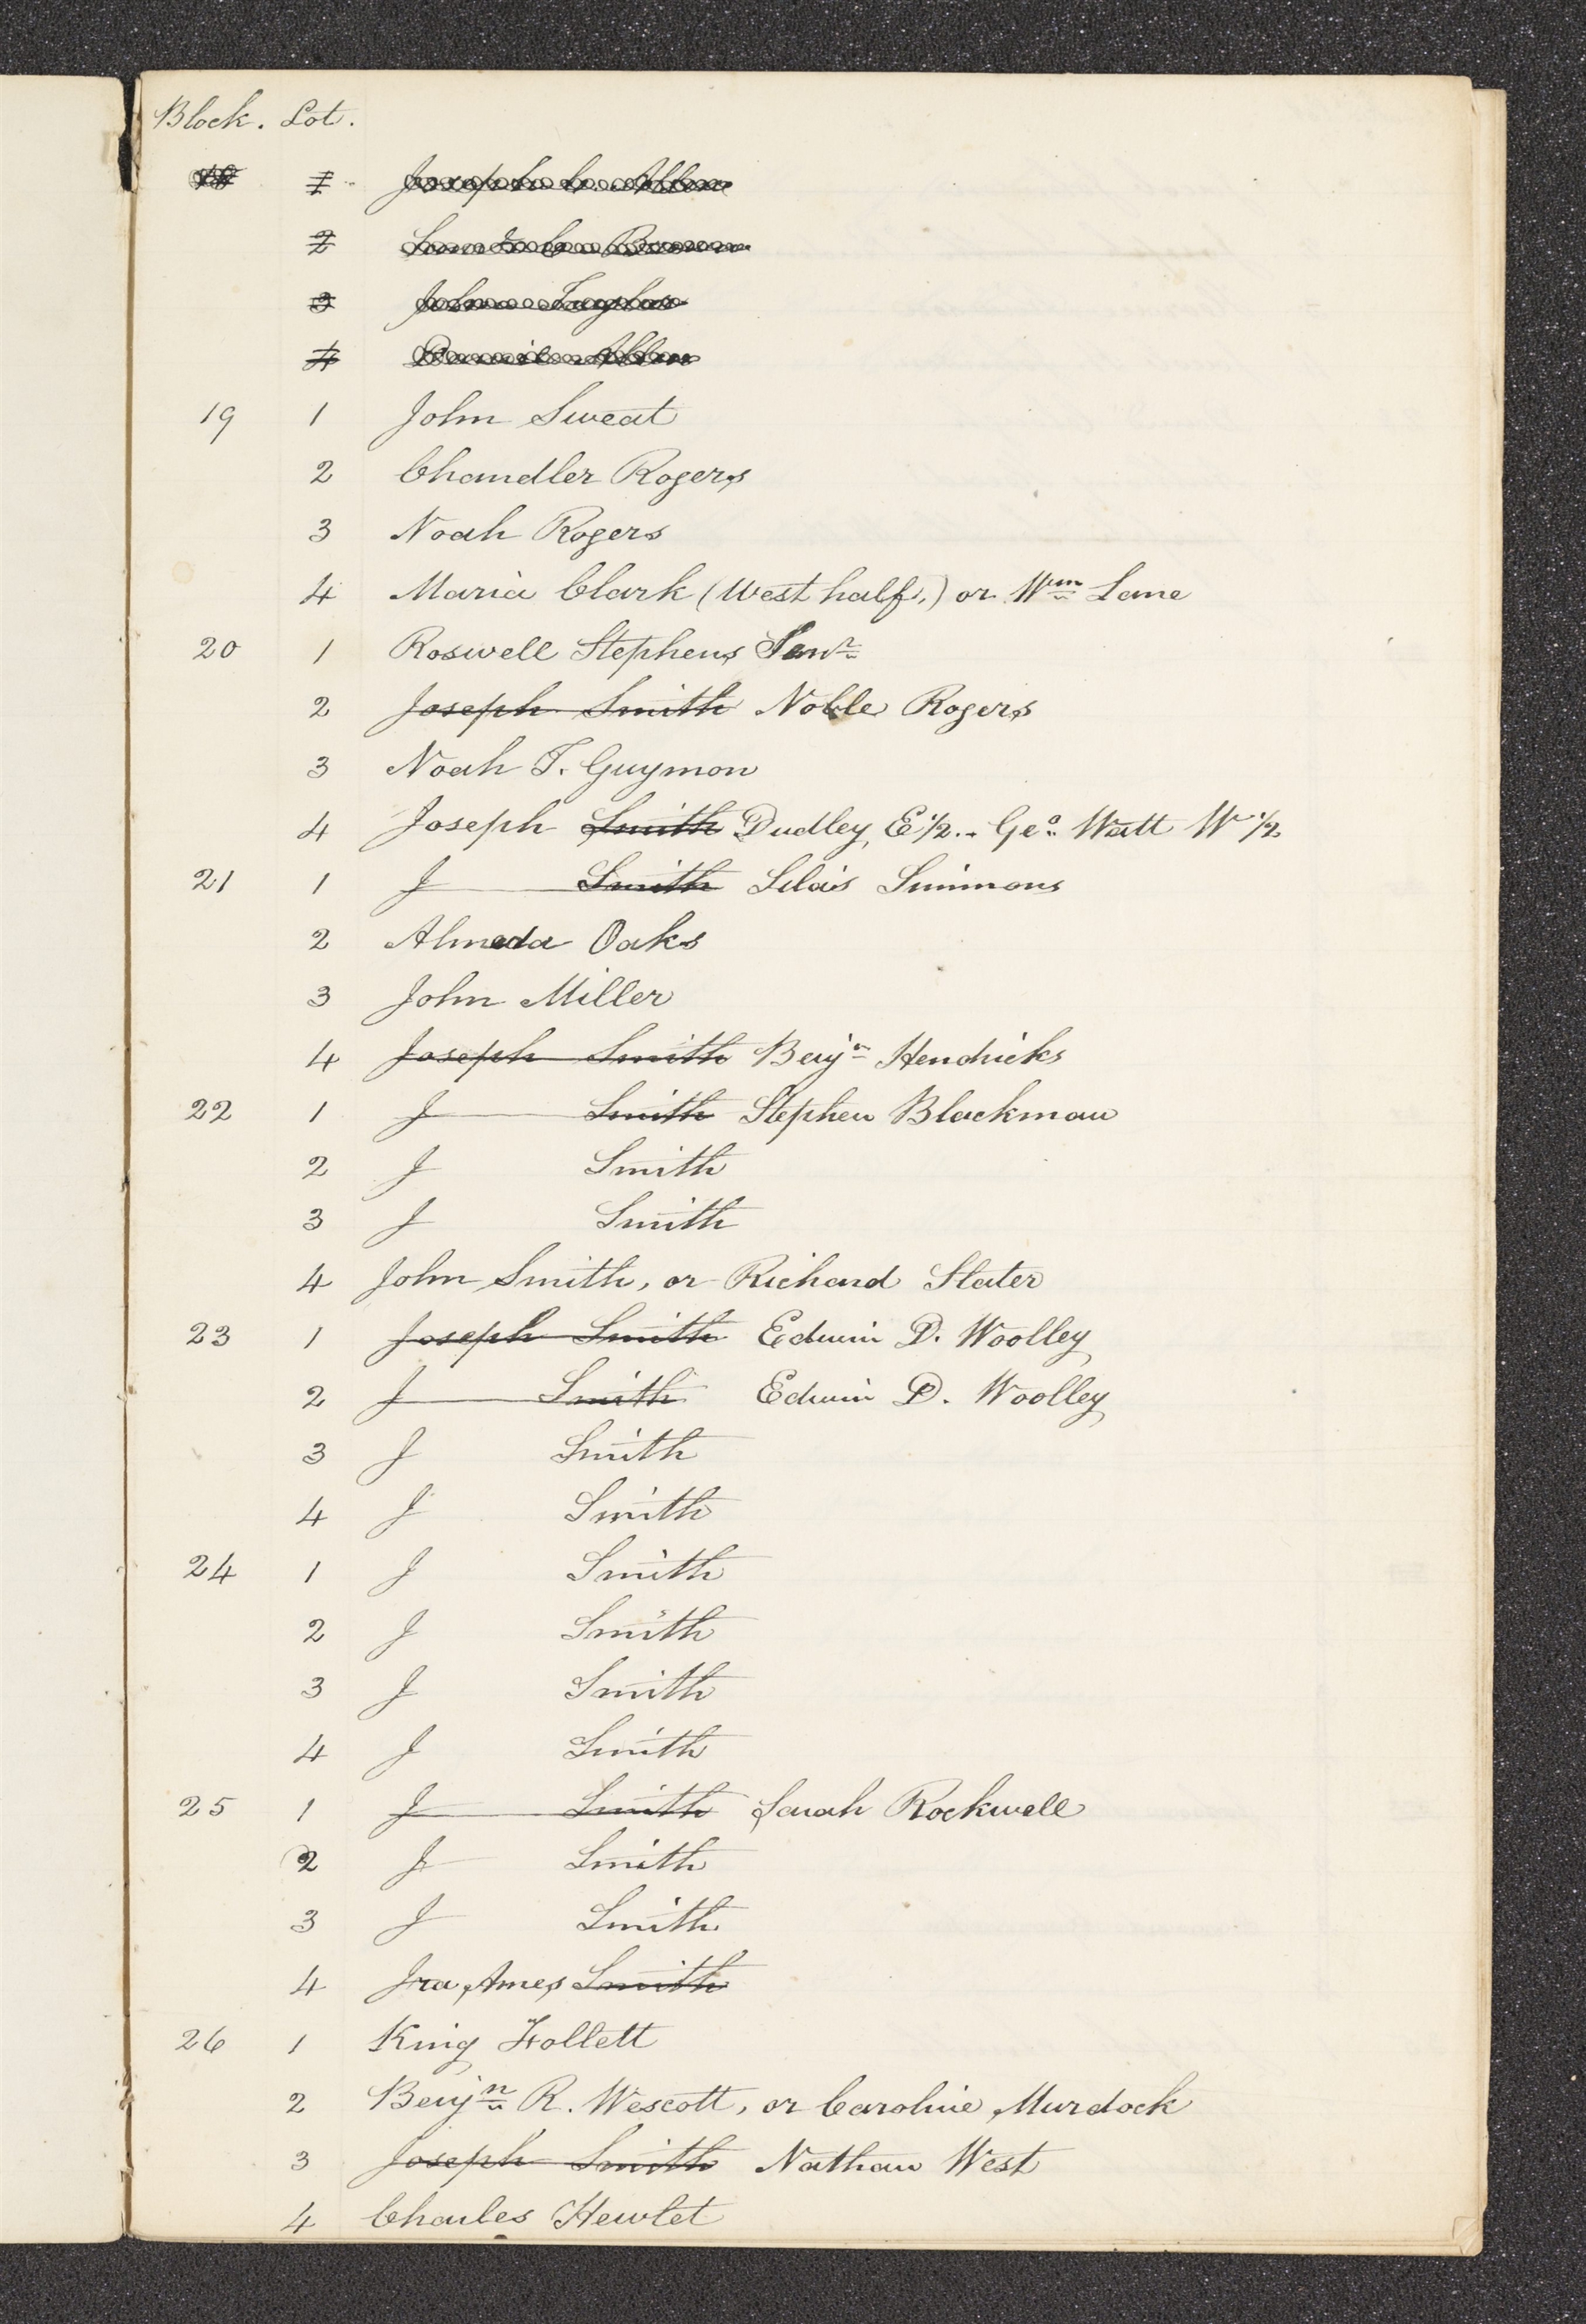 Block. Lot.
1 Joseph Allen
2
3 John Taylor
4 Allen
19 1 John Sweat
2 Chandler Rogers
3 Noah Rogers
4 Maria Clark (West half,) or Wm Lane
20 1 Roswell Stephens Senr
2 Joseph Smith Noble Rogers
3 Noah T. Guymon
4 Joseph Smith Dudley, E 1/2. - Geo. Watt W 1/2
21 1 J Smith Silas Simmons
2 Almeda Oaks
3 John Miller
4 Joseph Smith Benjn Hendricks
22 1 J Smith Stephen Blackman
2 J Smith
3 J Smith
4 John Smith, or Richard Slater
23 1 Joseph Smith Edwin D. Woolley
2 J Smith Edwin D. Woolley
3 J Smith
4 J Smith
24 1 J Smith
2 J Smith
3 J Smith
4 J Smith
25 1 J Smith Sarah Rockwell
2 J Smith
3 J Smith
4 Ira Ames Smith
26 1 King Follett
2 Benjn R. Wescott, or Caroline Murdock
3 Joseph Smith Nathan West
4 Charles Hewlet